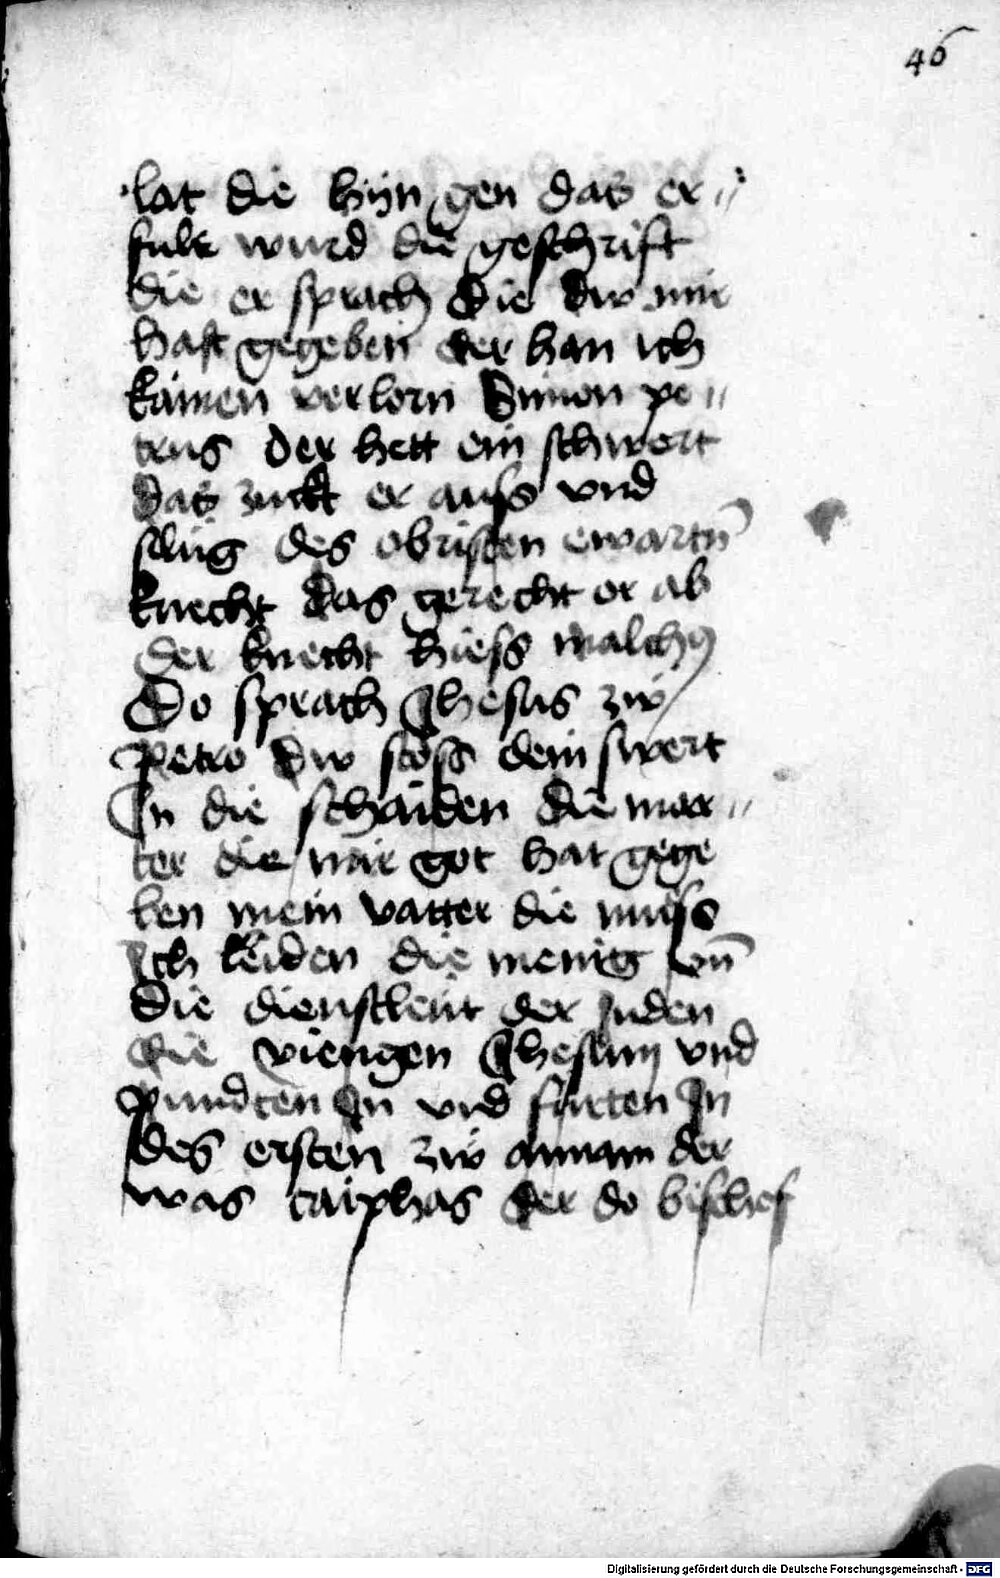 46
lat die hyn gen das er〃
fult wurd die geschrift
die er sprach Die dw mir
hast gegeben der han ich
kainen verlorn Simon pe〃
trus der hett ein schwert
das zuckt er auss und
slug des obristen ewartn̄
knecht das gerecht or ab
der knecht hiess malchꝯ
Do sprach Jhesus zw
petro dw stoss dein swert
In die schaiden die mar〃
ter die mir got hat gege
ben mein vatter die muss
Ich leiden die menig vn̄
die dienstleut der Juden
die viengen Jhesum vnd
pundten In vnd furten In
des ersten zw annam der
was caiphas der do bischof
Digitalisierung gefördert durch die Deutsche Forschungsgemeinschaft - DFG